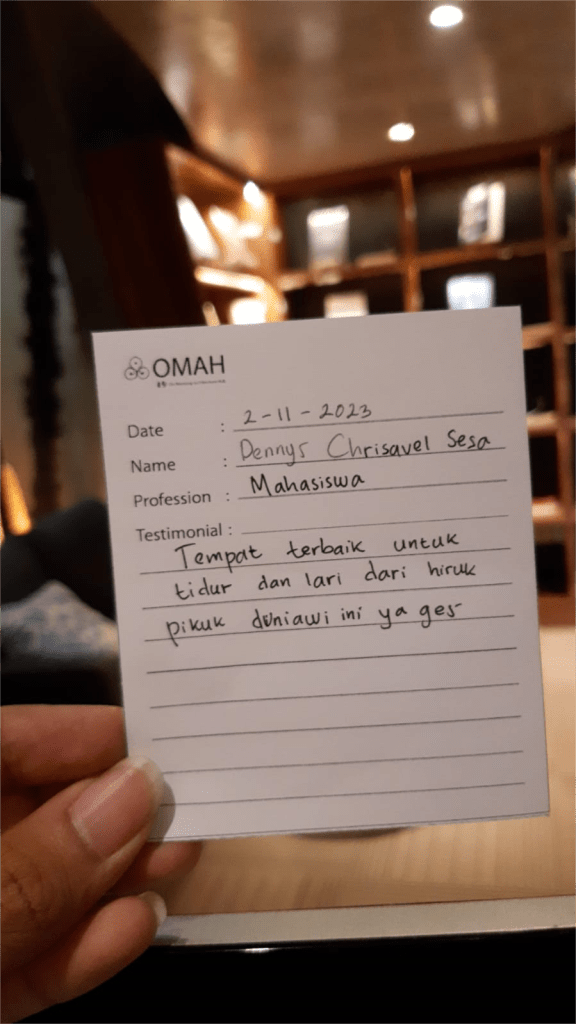 OMAH
Date : 2-11-2023
Name : Dennys Chrisavel Sesa
Profession : Mahasiswa
Testimonial :
Tempat terbaik untuk
tidur dan lari dari hiruk
pikuk duniawi ini ya ges